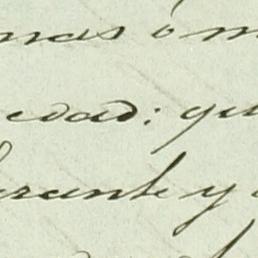 mas ó m
edad: qu
urante y